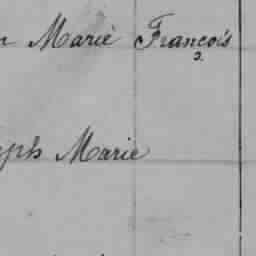 n Marie François
eph Marie